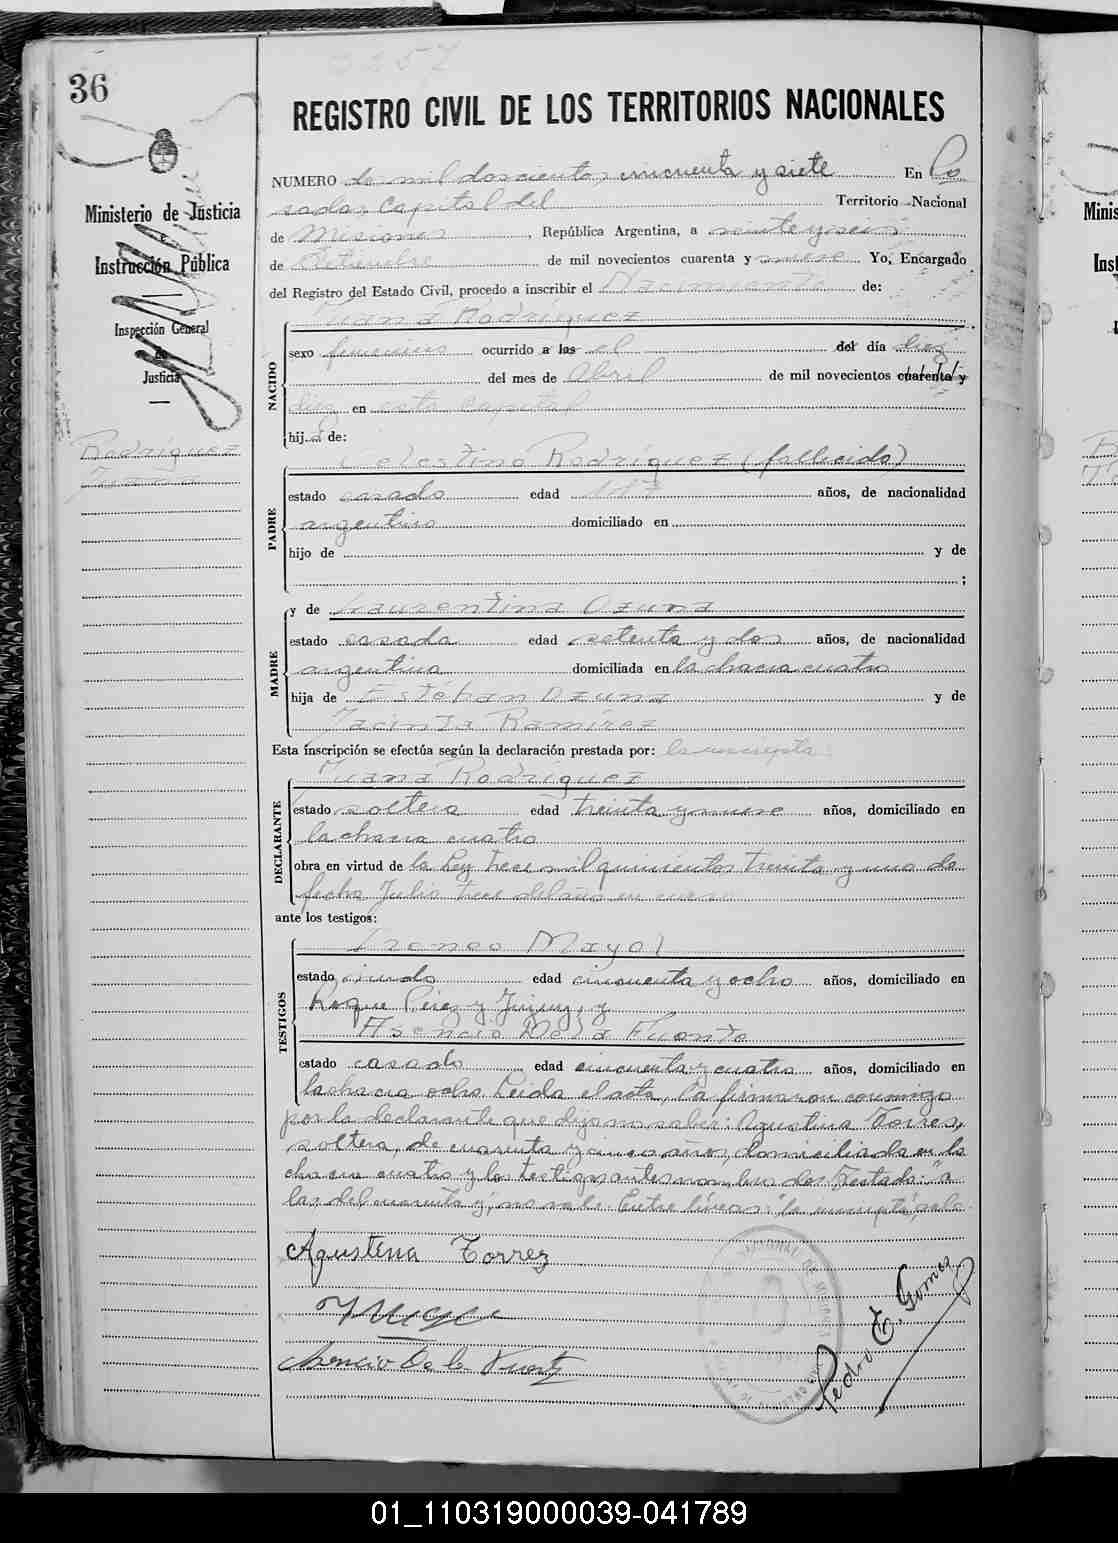 36
2257
REGISTRO CIVIL DE LOS TERRITORIOS NACIONALES
Ministerio de Justicia
e
Instrucción Pública
Inspección General
de
Justicia
Rodríguez
Juana
NUMERO dos mil doscientos cincuenta y siete En Po
sadas, Capital del Territorio Nacional
de Misiones, República Argentina, a veinte y seis
de Setiembre de mil novecientos cuarenta y nueve Yo, Encargado
del Registro del Estado Civil, procedo a inscribir el Nacimiento de:
NACIDO
Juana Rodríguez
sexo femenino ocurrido a las el del día diez
del mes de Abril de mil novecientos cuarenta y
diez en esta capital
hija de:
PADRE
Celestino Rodríguez (fallecido)
estado casado edad años, de nacionalidad
argentino domiciliado en
hijo de y de
;
MADRE
y de Laurentina Ozuna
estado casada edad setenta y dos años, de nacionalidad
argentina domiciliada en la chacra cuatro
hija de Estéban Ozuna y de
Jacinta Ramírez
Esta inscripción se efectúa según la declaración prestada por: la inscripta
DECLARANTE
Juana Rodríguez
estado soltera edad treinta y nueve años, domiciliado en
la chacra cuatro
obra en virtud de la Ley trece mil quinientos treinta y uno de
fecha Julio trece del año en curso
ante los testigos:
TESTIGOS
Ireneo Mayol
estado viudo edad cincuenta y ocho años, domiciliado en
Roque Pérez y Jujuy, y
Asencio De la Fuente
estado casado edad cincuenta y cuatro años, domiciliado en
la chacra ocho. Leida el acta, la firmaron conmigo
por la declarante que dijo no saber: Agustina Torres,
soltera, de cuarenta y cinco años, domiciliada en la
chacra cuatro y los testigos antes nombrados. Testado: "a
las, del, cuarenta y", no vale. Entre líneas: "la inscripta", vale.
Agustina Torrez
Asencio De la Fuente
Pedro E. Gomez
01_110319000039-041789